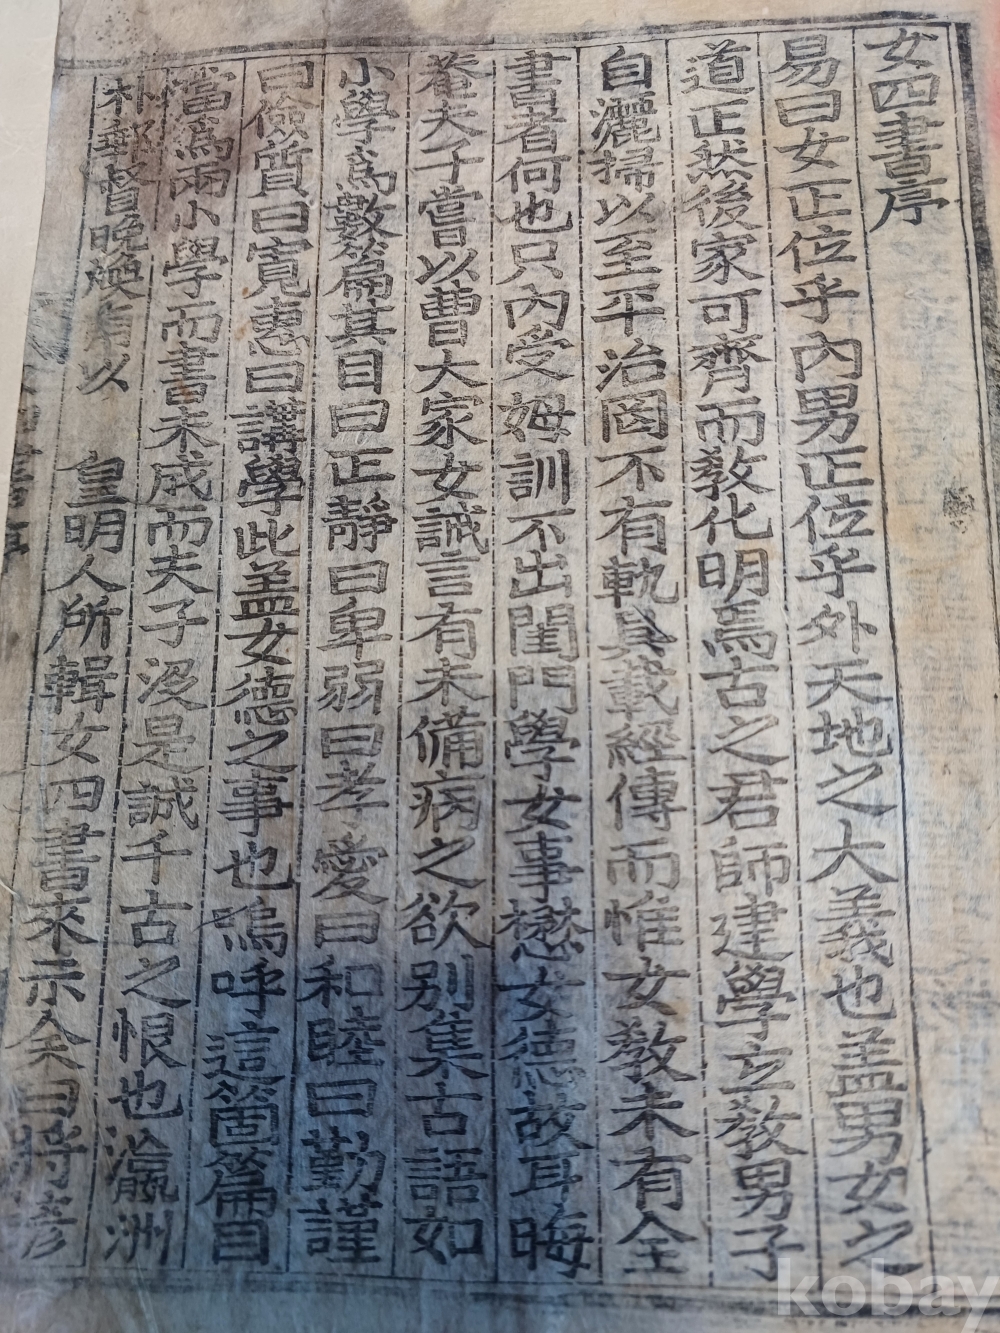 女四書序
易曰女正位乎內男正位乎外天地之大義也盖男女之
道正然後家可齊而敎化明焉古之君師建學立敎男子
自灑掃以至平治罔不有軌具載經傳而惟女敎未有全
書者何也只內受姆訓不出閨門學女事懋女德故耳晦
菴夫子嘗以曹大家女誡言有未備病之欲別集古語如
小學爲數篇其目曰正靜曰卑弱曰孝愛曰和睦曰勤謹
曰儉質曰寬惠曰講學此盖女德之事也嗚呼這箇篇目
當爲兩小學而書未成而夫子沒是誠千古之恨也瀛洲
朴郵督晚煥甫以 皇明人所輯女四書來示余曰將彥
kobay